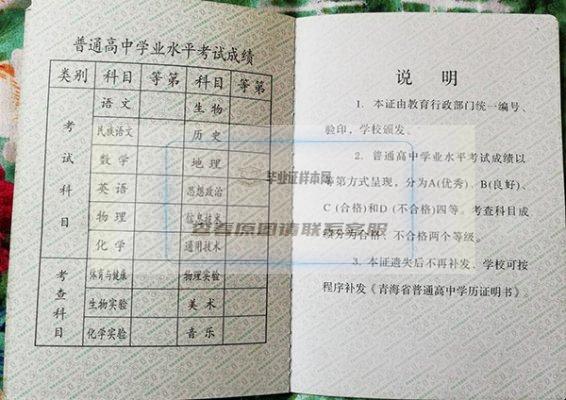 普通高中学业水平考试成绩
类别 科目 等第 科目 等第
考试科目
语文 生物
民族语文 历史
数学 地理
英语 思想政治
物理 信息技术
化学 通用技术
考查科目
体育与健康 物理实验
生物实验 美术
化学实验 音乐
说 明
1. 本证由教育行政部门统一编号、
验印,学校颁发。
2. 普通高中学业水平考试成绩以
等第方式呈现,分为A(优秀)、B(良好)、
C (合格)和D (不合格)四等。考查科目成
绩分为合格、不合格两个等级。
3. 本证遗失后不再补发。学校可按
程序补发《青海省普通高中学历证明书》
毕业证样本网
查看原图请联系客服